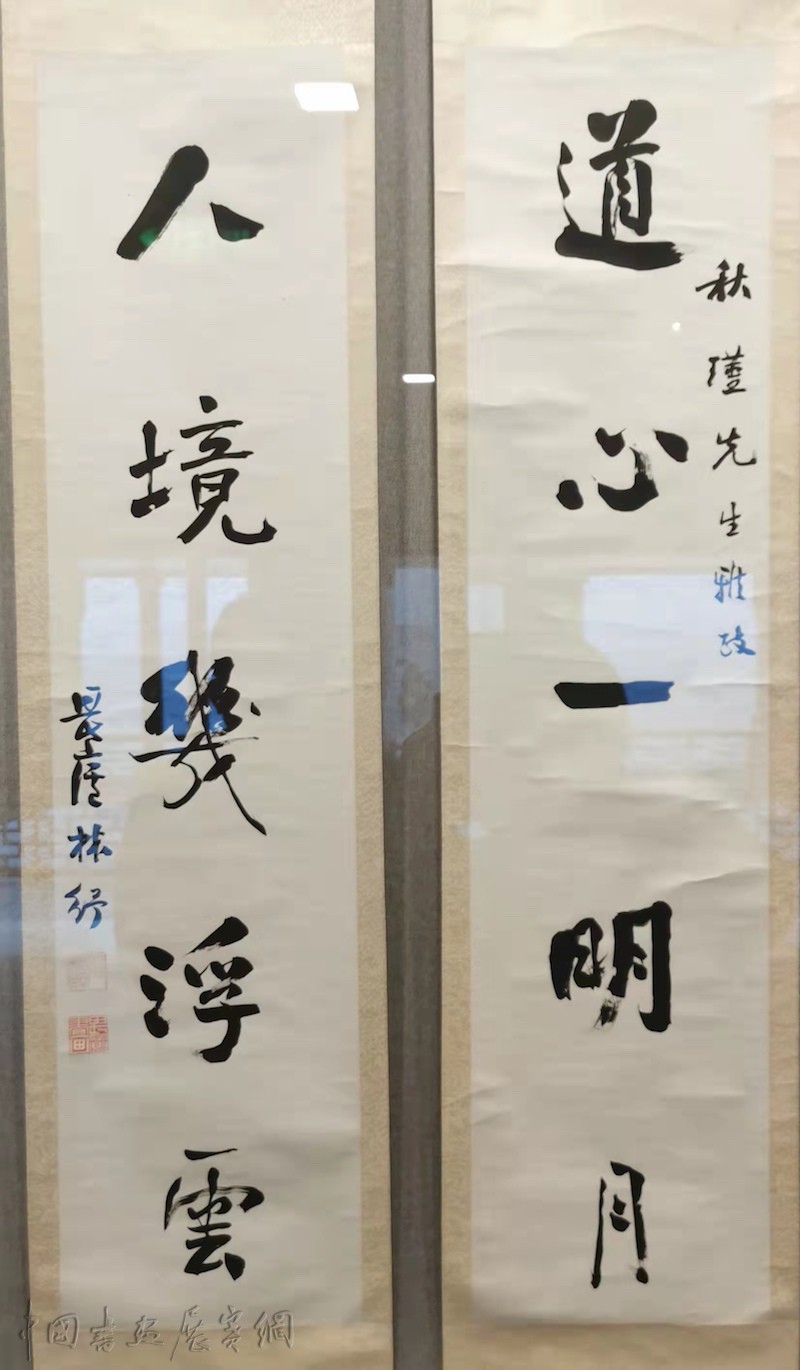 道心一明月
秋瑾先生雅政
人境幾浮雲
畏廬林紓
中国书画展赛网